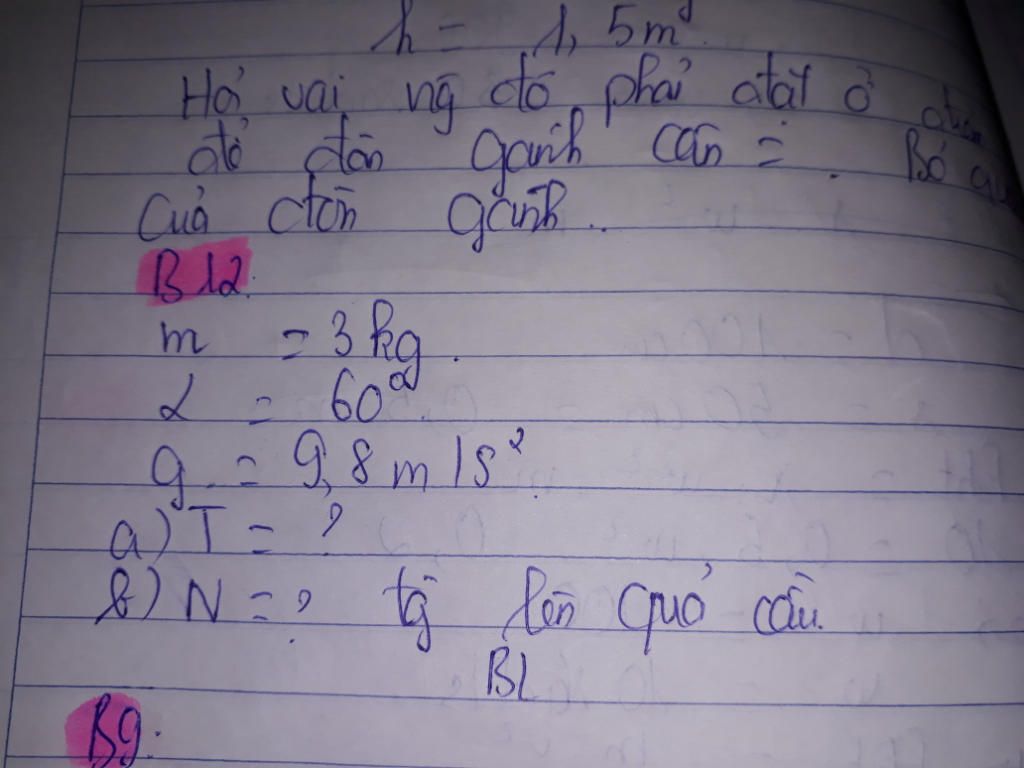 h = 1,5m
Hỏi vai ng đó phải đặt ở
để đòn gánh cân = . Bỏ qua
của đòn gánh..
B12.
m = 3 kg.
α = 60°
g = 9,8 m/s²
a) T = ?
b) N = ? td lên quả cầu.
BL
B9.